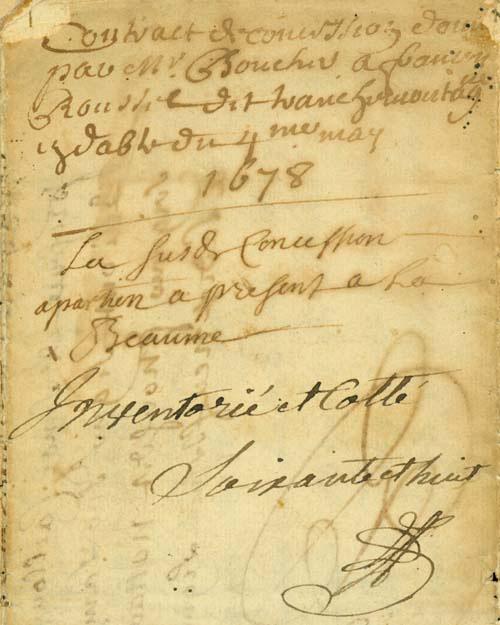 Contract de concession don
par Mr. Boucher a francois
Roussel dit
dable du 4 me may
1678
La susd Concession
apartien a present a La
Beaume
Inventorié et Cotté
Soixante et huit